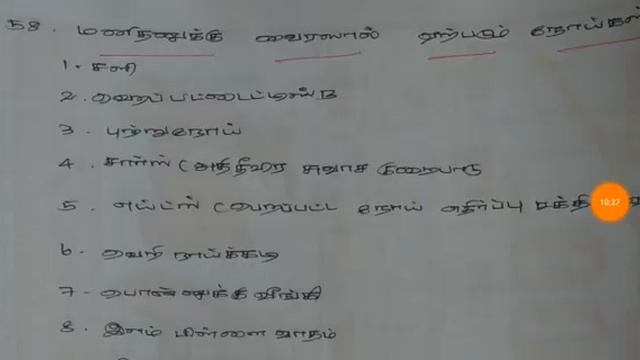 58. மனிதனுக்கு வைரஸால் ஏற்படும் நோய்கள்
1. சளி
2. ஹெபட்டைட்டிஸ் B
3. புற்றுநோய்
4. சார்ஸ் (அதிதீவிர சுவாச குறைபாடு
5. எய்ட்ஸ் (பெறப்பட்ட நோய் எதிர்ப்பு சக்தி
6. வெறி நாய்க்கடி
7. பொன்னுக்கு வீங்கி
8. இளம் பிள்ளை வாதம்
10:27